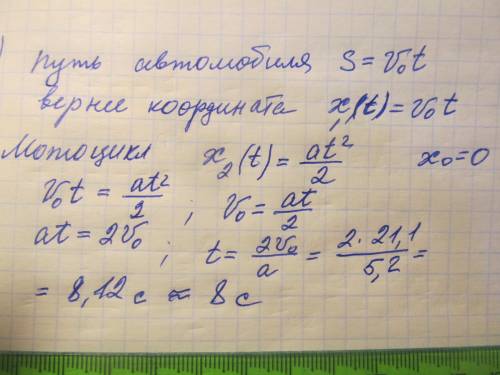 )
Путь автомобиля S = v₀t
вернее координата x₁(t) = v₀t
Мотоцикл x₂(t) = at²/2 x₀ = 0
v₀t = at²/2 ; v₀ = at/2
at = 2v₀ ; t = 2v₀/a = 2·21,1/5,2 =
= 8,12 с ≈ 8 с